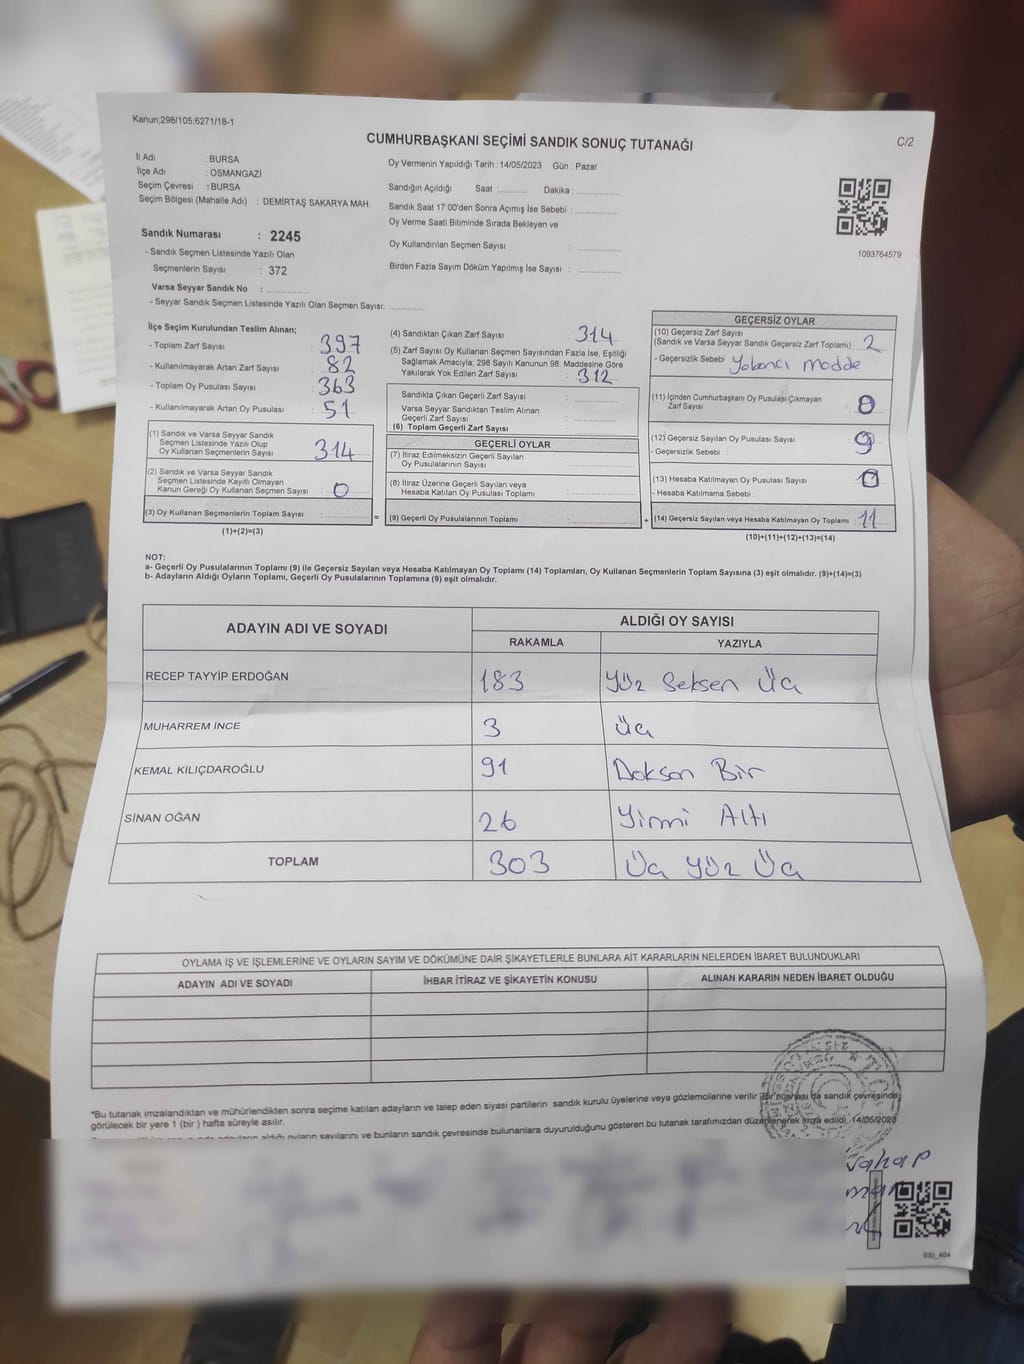 Kanun;298/105;6271/18-1
CUMHURBAŞKANI SEÇİMİ SANDIK SONUÇ TUTANAĞI
C/2
İl Adı : BURSA
İlçe Adı : OSMANGAZİ
Seçim Çevresi : BURSA
Seçim Bölgesi (Mahalle Adı) : DEMİRTAŞ SAKARYA MAH.
Sandık Numarası : 2245
- Sandık Seçmen Listesinde Yazılı Olan
Seçmenlerin Sayısı : 372
Varsa Seyyar Sandık No : ..............
- Seyyar Sandık Seçmen Listesinde Yazılı Olan Seçmen Sayısı: ............
Oy Vermenin Yapıldığı Tarih : 14/05/2023 Gün : Pazar
Sandığın Açıldığı Saat ............ Dakika : ..............
Sandık Saat 17:00'den Sonra Açımış İse Sebebi : ..............
Oy Verme Saati Bitiminde Sırada Bekleyen ve
Oy Kullandırılan Seçmen Sayısı : ..............
Birden Fazla Sayım Döküm Yapılmış İse Sayısı : ..............
1093764579
İlçe Seçim Kurulundan Teslim Alınan;
- Toplam Zarf Sayısı : 397
- Kullanılmayarak Artan Zarf Sayısı : 82
- Toplam Oy Pusulası Sayısı : 363
- Kullanılmayarak Artan Oy Pusulası : 51
(1) Sandık ve Varsa Seyyar Sandık
Seçmen Listesinde Yazılı Olup
Oy Kullanan Seçmenlerin Sayısı : 314
(2) Sandık ve Varsa Seyyar Sandık
Seçmen Listesinde Kayıtlı Olmayan
Kanun Gereği Oy Kullanan Seçmen Sayısı : 0
(3) Oy Kullanan Seçmenlerin Toplam Sayısı : ..............
(1)+(2)=(3)
(4) Sandıktan Çıkan Zarf Sayısı : 314
(5) Zarf Sayısı Oy Kullanan Seçmen Sayısından Fazla İse, Eşitliği
Sağlamak Amacıyla; 298 Sayılı Kanunun 98. Maddesine Göre
Yakılarak Yok Edilen Zarf Sayısı : 312
Sandıkta Çıkan Geçerli Zarf Sayısı : ..............
Varsa Seyyar Sandıktan Teslim Alınan
Geçerli Zarf Sayısı : ..............
(6) Toplam Geçerli Zarf Sayısı :
GEÇERLİ OYLAR
(7) İtiraz Edilmeksizin Geçerli Sayılan
Oy Pusulalarının Sayısı : ..............
(8) İtiraz Üzerine Geçerli Sayılan veya
Hesaba Katılan Oy Pusulası Toplamı : ..............
= (9) Geçerli Oy Pusulalarının Toplamı : ..............
GEÇERSİZ OYLAR
(10) Geçersiz Zarf Sayısı
(Sandık ve Varsa Seyyar Sandık Geçersiz Zarf Toplamı) : 2
- Geçersizlik Sebebi : Yabancı madde
(11) İçinden Cumhurbaşkanı Oy Pusulası Çıkmayan
Zarf Sayısı : 0
(12) Geçersiz Sayılan Oy Pusulası Sayısı : 9
- Geçersizlik Sebebi :
(13) Hesaba Katılmayan Oy Pusulası Sayısı : 0
- Hesaba Katılmama Sebebi :
+ (14) Geçersiz Sayılan veya Hesaba Katılmayan Oy Toplamı : 11
(10)+(11)+(12)+(13)=(14)
NOT:
a- Geçerli Oy Pusulalarının Toplamı (9) ile Geçersiz Sayılan veya Hesaba Katılmayan Oy Toplamı (14) Toplamları, Oy Kullanan Seçmenlerin Toplam Sayısına (3) eşit olmalıdır. (9)+(14)=(3)
b- Adayların Aldığı Oyların Toplamı, Geçerli Oy Pusulalarının Toplamına (9) eşit olmalıdır.
ADAYIN ADI VE SOYADI ALDIĞI OY SAYISI
RAKAMLA YAZIYLA
RECEP TAYYİP ERDOĞAN 183 Yüz Seksen Üç
MUHARREM İNCE 3 Üç
KEMAL KILIÇDAROĞLU 91 Doksan Bir
SİNAN OĞAN 26 Yirmi Altı
TOPLAM 303 Üç Yüz Üç
OYLAMA İŞ VE İŞLEMLERİNE VE OYLARIN SAYIM VE DÖKÜMÜNE DAİR ŞİKAYETLERLE BUNLARA AİT KARARLARIN NELERDEN İBARET BULUNDUKLARI
ADAYIN ADI VE SOYADI İHBAR İTİRAZ VE ŞİKAYETİN KONUSU ALINAN KARARIN NEDEN İBARET OLDUĞU
*Bu tutanak imzalandıktan ve mühürlendikten sonra seçime katılan adayların ve talep eden siyasi partilerin sandık kurulu üyelerine veya gözlemcilerine verilir. Bir nüshası da sandık çevresinde
görülecek bir yere 1 (bir ) hafta süreyle asılır.
adayların aldığı oyların sayılarını ve bunların sandık çevresinde bulunanlara duyurulduğunu gösteren bu tutanak tarafımızdan düzenlenerek imza edildi. 14/05/2023
vahap
SSI_404